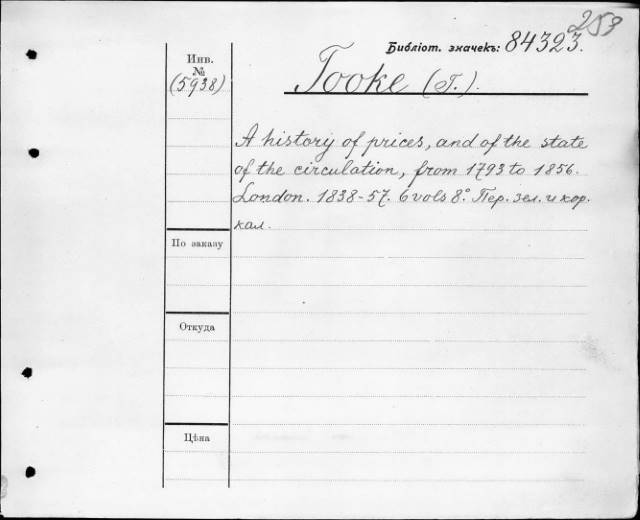 259
Библіот. значекъ: 84323.
Инв.
№
(5938)
Tooke (T.).
A history of prices, and of the state
of the circulation, from 1793 to 1856.
London. 1838-57. 6 vols 8.° Пер. зел. и кор.
кал.
По заказу
Откуда
Цѣна